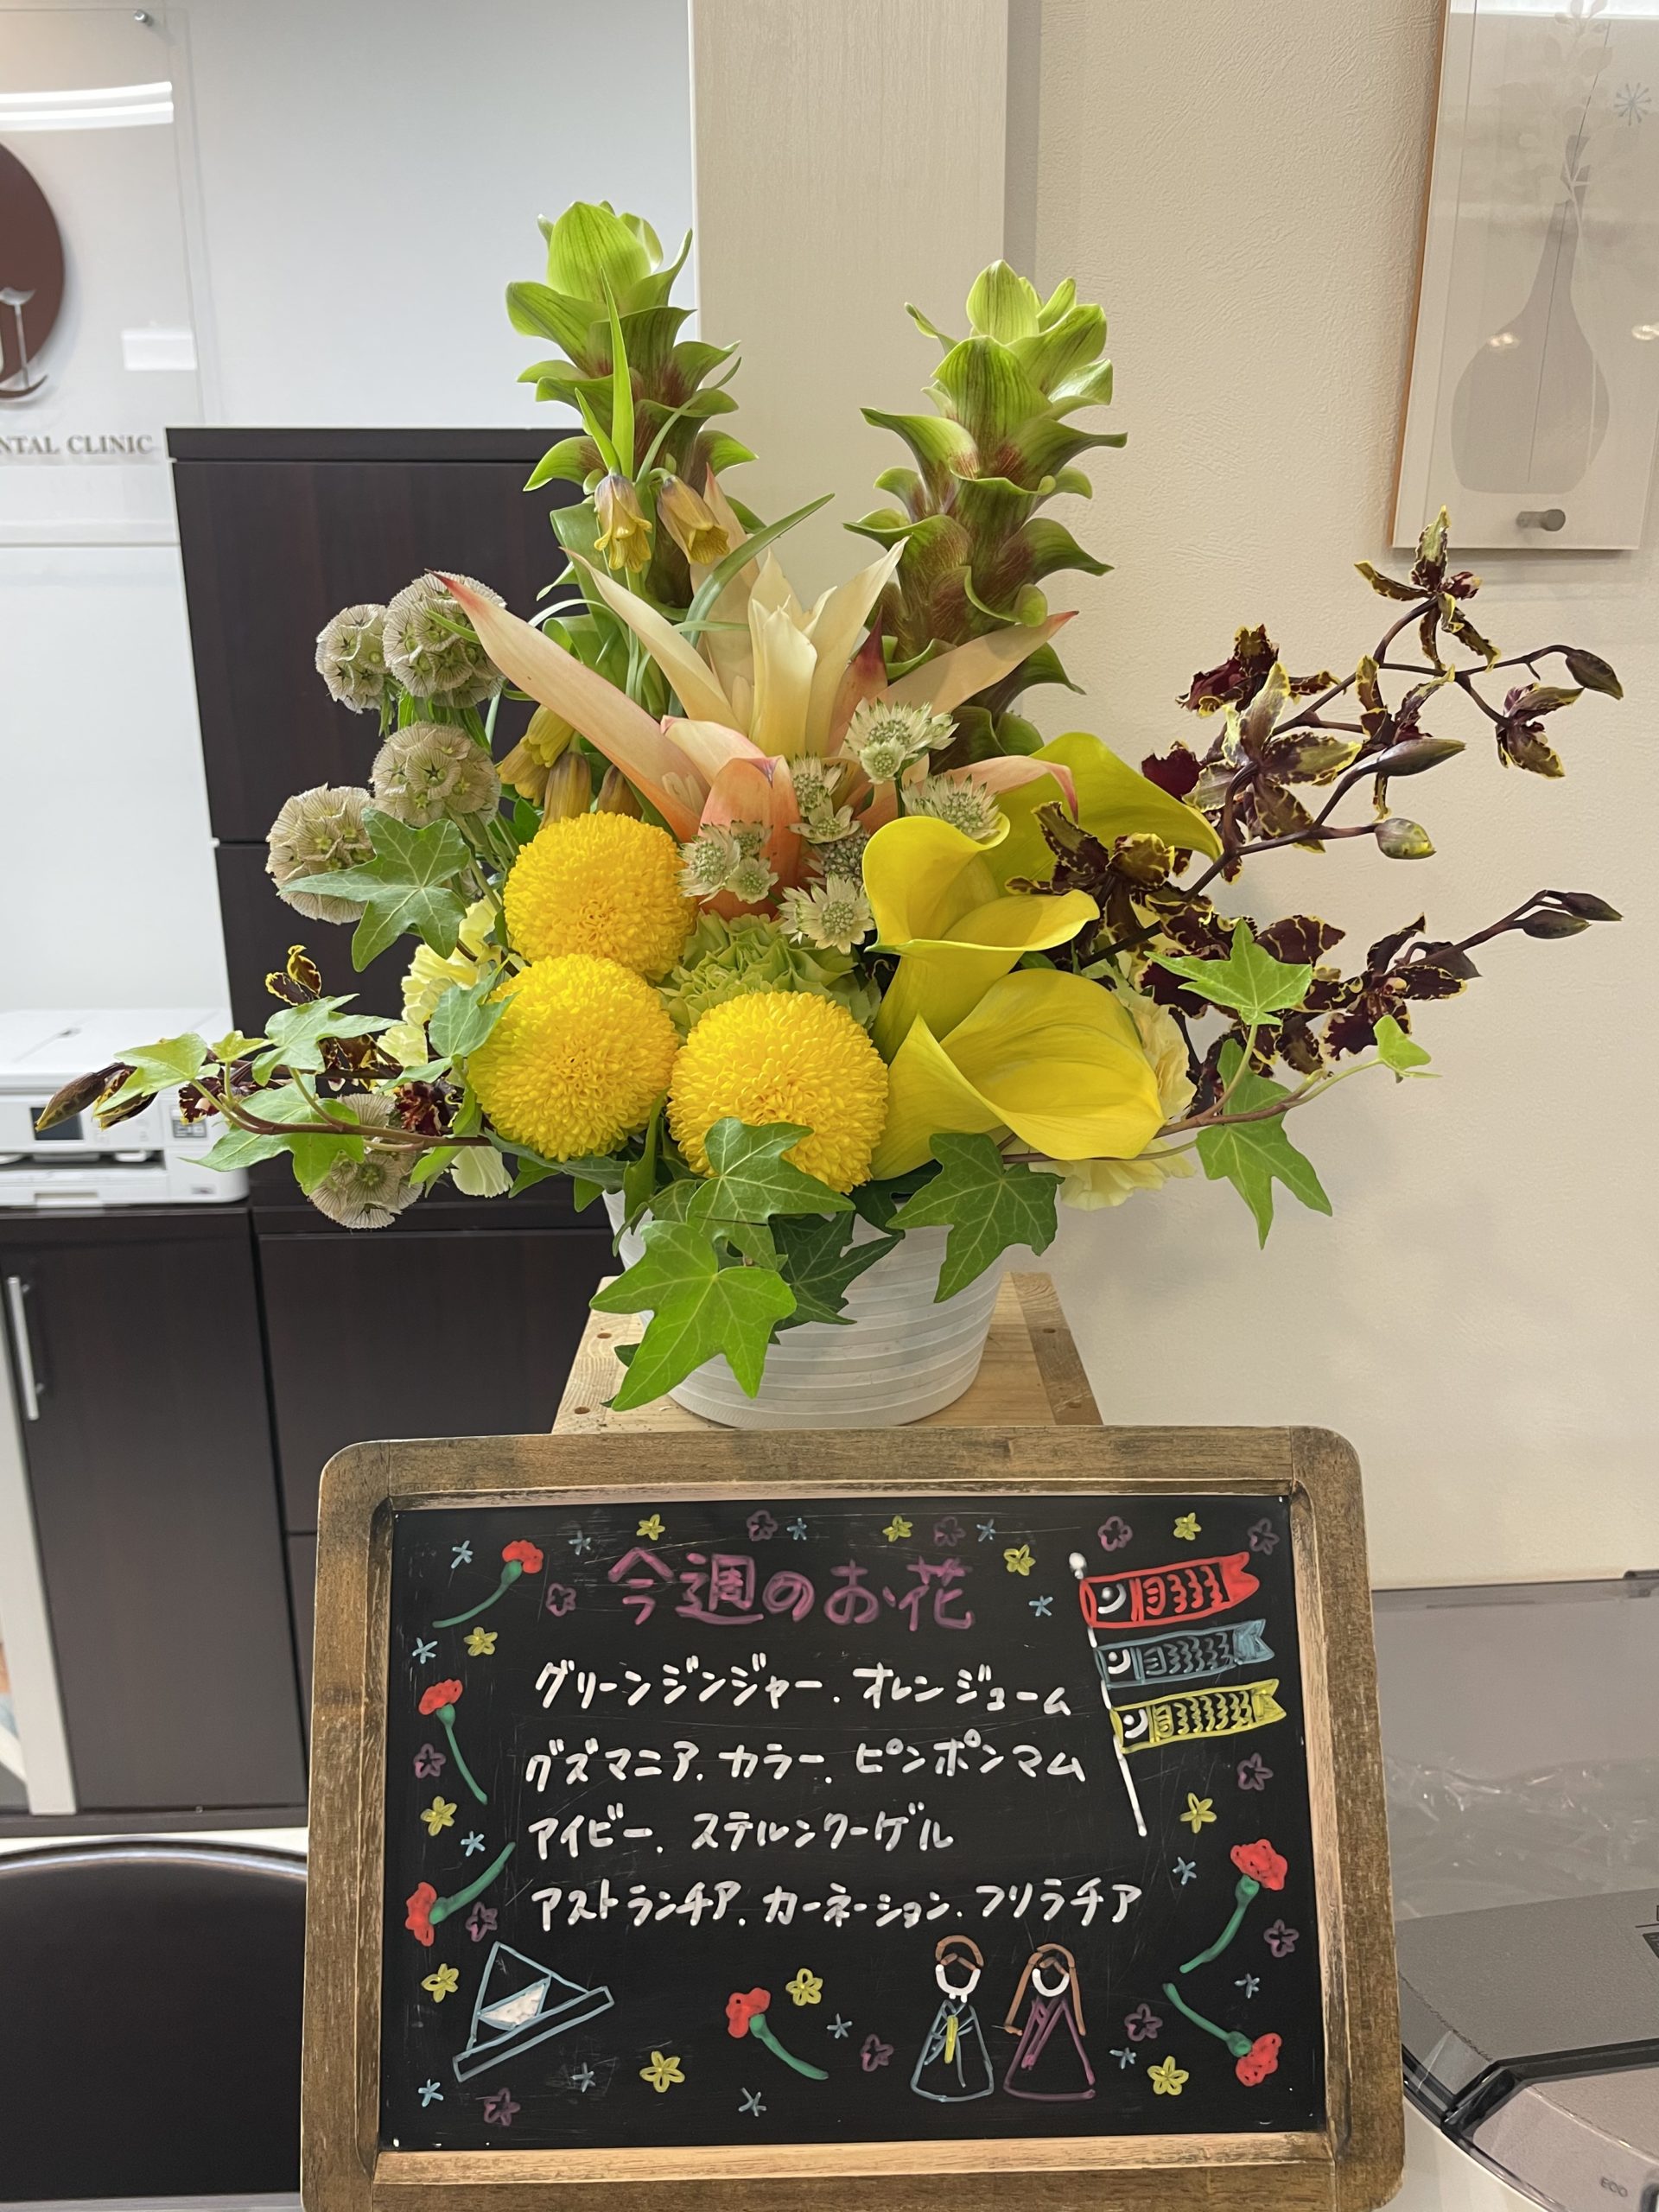 NTAL CLINIC
今週のお花
グリーンジンジャー. オレンジューム
グズマニア. カラー. ピンポンマム
アイビー. ステルンクーゲル
アストランチア. カーネーション. フリラチア
ECO